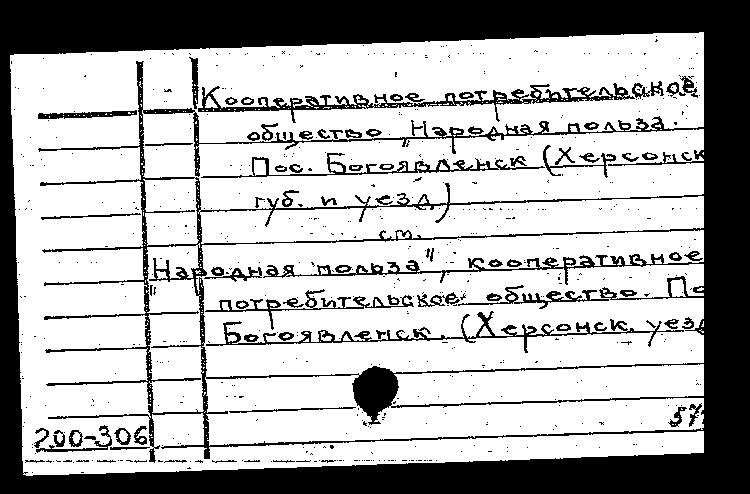 Кооперативное потребительское
общество "Народная польза.
Пос. Богоявленск (Херсонск
губ. и уезд)
см.
"Народная польза", кооперативное
потребительское общество. По
Богоявленск. (Херсонск. уезд
57
200-306